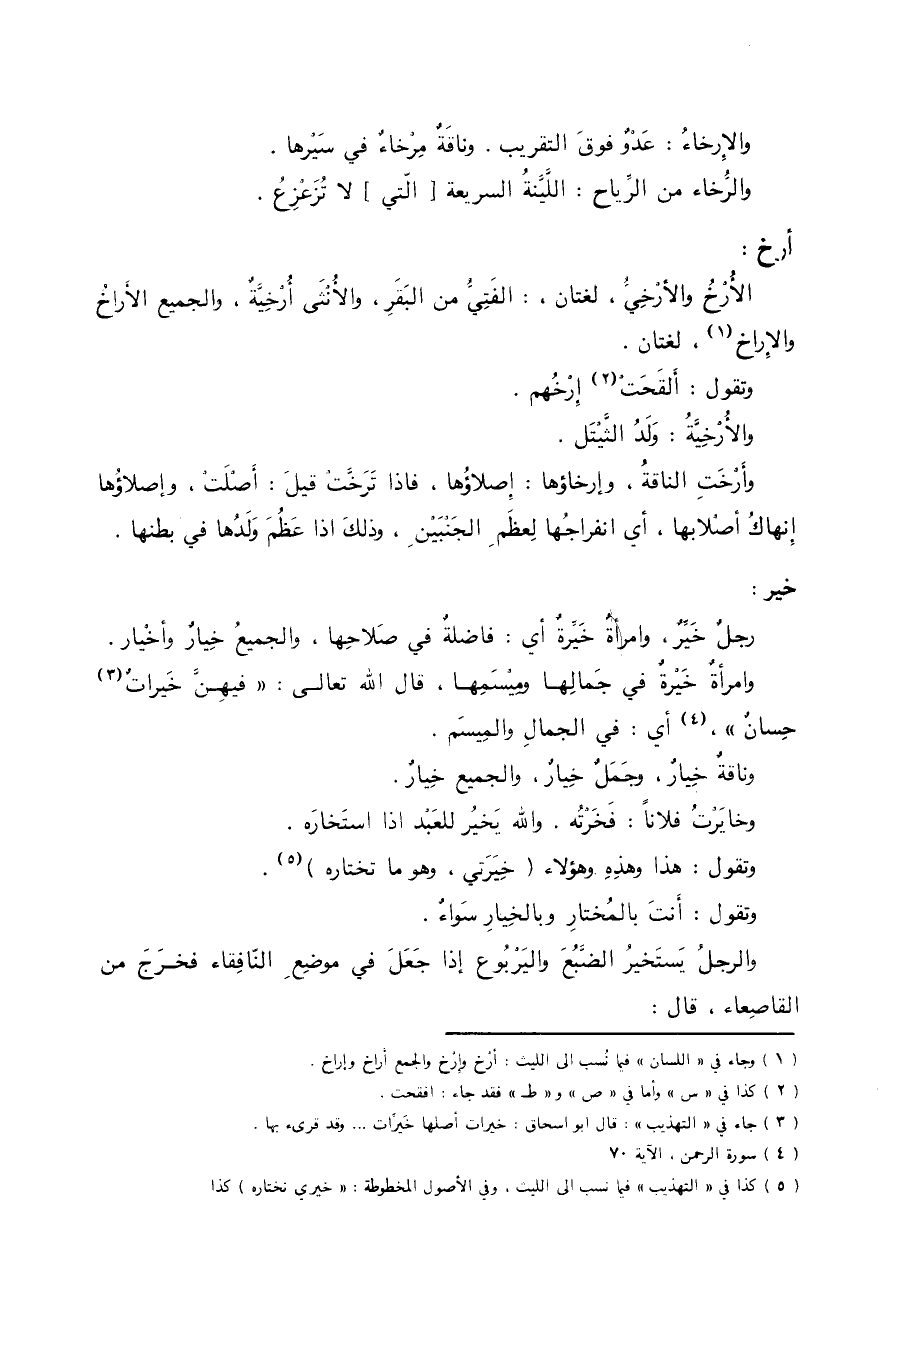 والإرخاءُ : عَدْوٌ فوقَ التقريب . وناقَةٌ مِرْخاءٌ في سَيْرها .
والرُّخاء من الرِّياح : اللَّيَّنةُ السريعة [ الّتي ] لا تُزَعْزِعُ .
أرخ :
الأُرْخُ والأرْخِيُّ ، لغتان ، : الفَتِيُّ من البَقَرِ ، والأُنْثَى أُرْخِيَّةٌ ، والجميع الأراخُ
والإراخ(١) ، لغتان .
وتقول : أَلقَحَتْ(٢) إرْخُهم .
والأُرْخِيَّةُ : وَلَدُ الثَّيْتَل .
وأَرْخَتِ الناقةُ ، وإرخاؤها : إصلاؤُها ، فاذا تَرَخَّتْ قيلَ : أَصْلَتْ ، وإصلاؤُها
إنهاكُ أصْلابها ، أي انفراجُها لِعظَمِ الجَنْبَيْنِ ، وذلكَ اذا عَظُمَ وَلَدُها في بطنها .
خير :
رجلٌ خَيِّرٌ ، وامرأةٌ خَيِّرةٌ أي : فاضلةٌ في صَلاحِها ، والجميعُ خِيارٌ وأخْيار .
وامرأةٌ خَيْرةٌ في جَمالِها ومِيْسَمِها ، قال الله تعالى : « فيهِنَّ خَيراتٌ(٣)
حِسانٌ » ،(٤) أي : في الجمالِ والمِيسَم .
وناقةٌ خِيارٌ ، وجَمَلٌ خِيارٌ ، والجميع خِيارٌ .
وخايَرْتُ فلاناً : فَخَرْتُه . والله يَخيرُ للعَبْد اذا استَخارَه .
وتقول : هذا وهذهِ وهؤلاء ( خِيَرَتي ، وهو ما تختاره )(٥) .
وتقول : أنتَ بالمُختارِ وبالخِيارِ سَواءٌ .
والرجلُ يَستَخيرُ الضَّبُعَ واليَرْبُوع إذا جَعَلَ في موضِعِ النّافِقاء فخـرَجَ من
القاصِعاء ، قال :
( ١ ) وجاء في « اللسان » فيما نُسب الى الليث : أرْخ وإرْخ والجمع أراخ وإراخ .
( ٢ ) كذا في « س » وأما في « ص » و « ط » فقد جاء : افقحت .
( ٣ ) جاء في « التهذيب » : قال ابو اسحاق : خيرات أصلها خَيِرَات ... وقد قرىء بها .
( ٤ ) سورة الرحمن ، الآية ٧٠
( ٥ ) كذا في « التهذيب » فيما نسب الى الليث ، وفي الأصول المخطوطة : « خيري نختاره ) كذا